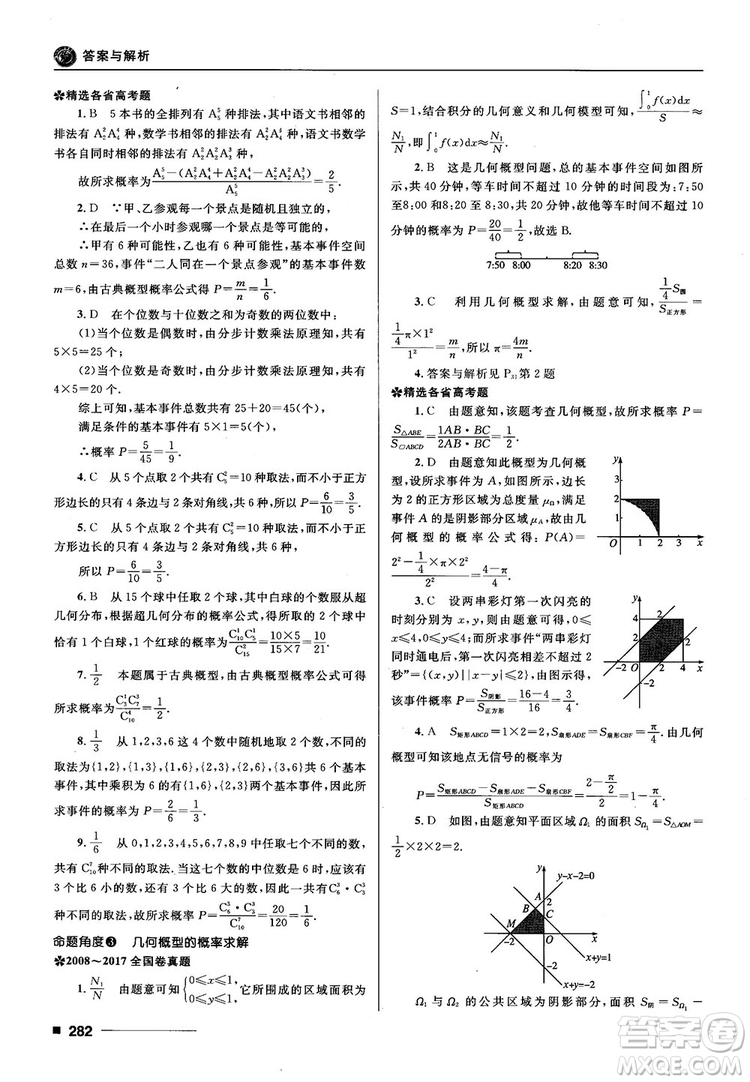 答案与解析
✽精选各省高考题
1. B 5 本书的全排列有 A₅⁵ 种排法,其中语文书相邻的
排法有 A₂²A₄⁴ 种,数学书相邻的排法有 A₂²A₄⁴ 种,语文书数学
书各自同时相邻的排法有 A₂²A₂²A₃³ 种.
故所求概率为 (A₅⁵−(A₂²A₄⁴+A₂²A₄⁴−A₂²A₂²A₃³))/A₅⁵ = 2/5.
2. D ∵甲、乙参观每一个景点是随机且独立的,
∴最后一个小时参观哪一个景点是等可能的,
∴甲有 6 种可能性,乙也有 6 种可能性,基本事件空间
总数 n=36,事件“二人同在一个景点参观”的基本事件数
m=6,由古典概型概率公式得 P=m/n=1/6.
3. D 在个位数与十位数之和为奇数的两位数中:
(1)当个位数是偶数时,由分步计数乘法原理知,共有
5×5=25 个;
(2)当个位数是奇数时,由分步计数乘法原理知,共有
4×5=20 个.
综上可知,基本事件总数共有 25+20=45(个),
满足条件的基本事件有 5×1=5(个),
∴概率 P=5/45=1/9.
4. C 从 5 个点取 2 个点共有 C₅²=10 种取法,其中正方
形边长的只有 4 条边与 2 条对角线,所以 P=6/10=3/5.
5. C 从 5 个点取 2 个点共有 C₅²=10 种取法,不小于
正方形边长的只有 4 条边与 2 条对角线,共 6 种,
所以 P=6/10=3/5.
6. B 从 15 个球中任取 2 个球,其中白球的个数服从超
几何分布,根据超几何分布的概率公式,得所取的 2 个球中
恰有 1 个白球,1 个红球的概率为 C₁₀¹C₅¹/C₁₅²=(10×5)/(15×7)=10/21.
7. 1/2 本题属于古典概型,由古典概型概率公式可得
所求概率为 C₃¹C₇³/C₁₀⁴=1/2.
8. 1/3 从 1,2,3,6 这 4 个数中随机地取 2 个数,不同的
取法为{1,2},{1,3},{1,6},{2,3},{2,6},{3,6}共 6 个基本
事件,其中乘积为 6 的有{1,6},{2,3}两个基本事件,因此所
求事件的概率为 P=2/6=1/3.
9. 1/6 从 0,1,2,3,4,5,6,7,8,9 中任取七个不同的数,
有 C₁₀⁷ 种不同的取法.这七个数的中位数是 6 时,应该有 3
个比 6 小的数,还有 3 个比 6 大的数,因此一共有 C₆³·C₃³
种不同的取法,故所求概率 P=C₆³·C₃³/C₁₀⁷=20/120=1/6.
命题角度❸ 几何概型的概率求解
✽2008~2017 全国卷真题
1. N₁/N 由题意可知{0≤x≤1, 0≤y≤1,它所围成的区域面积为
282
S=1,结合积分的几何意义和几何模型可知 ∫₀¹f(x)dx/S ≈
N₁/N,即∫₀¹f(x)dx≈N₁/N.
2. B 这是几何概型问题,总的基本事件空间如图所
示,共 40 分钟,等车时间不超过 10 分钟的时间段为:7:50
至8:00 和 8:20 至 8:30,共 20 分钟,故他等车时间不超过 10
分钟的概率为 P=20/40=1/2,故选 B.
7:50 8:00 8:20 8:30
3. C 利用几何概型求解,由题意可知,(1/4 S圆)/S正方形=
(1/4 π×1²)/1²=m/n,所以 π=4m/n.
4. 答案与解析见 P₃₁第 2 题
✽精选各省高考题
1. C 由题意知,该题考查几何概型,故所求概率 P=
S△ABE/S□ABCD=1AB·BC/2AB·BC=1/2.
2. D 由题意知此概型为几何概
型,设所求事件为 A,如图所示,边长
为 2 的正方形区域为总度量 μΩ,满足
事件 A 的是阴影部分区域 μA,故由几
何概型的概率公式得: P(A)=
(2²−1/4×π×2²)/2²=(4−π)/4.
y 3 2 1 O 1 2 3 x
3. C 设两串彩灯第一次闪亮的
时刻分别为 x,y,由题意知,0≤
x≤4,0≤y≤4,所求事件“两串彩灯
同时通电后,第一次闪亮相差不超过 2
秒”={(x,y)||x−y|≤2},由图示得,
该事件概率 P=S阴影/S正方形=(16−4)/16=3/4.
y 4 2 −2 O 2 4 x −2
4. A S矩形ABCD=1×2=2,S扇形ADE=S扇形CBF=π/4.由几何
概型可知该地点无信号的概率为
P=(S矩形ABCD−S扇形ADE−S扇形CBF)/S矩形ABCD=(2−π/2)/2=1−π/4.
5. D 如图,由题意知平面区域 Ω₁ 的面积 SΩ₁=S△AOM=
1/2×2×2=2.
y y−x−2=0 A 2 B C M −2 O 1 x −2 x+y=1 x+y=−2
Ω₁ 与 Ω₂ 的公共区域为阴影部分,面积 S阴=SΩ₁−
答案圈